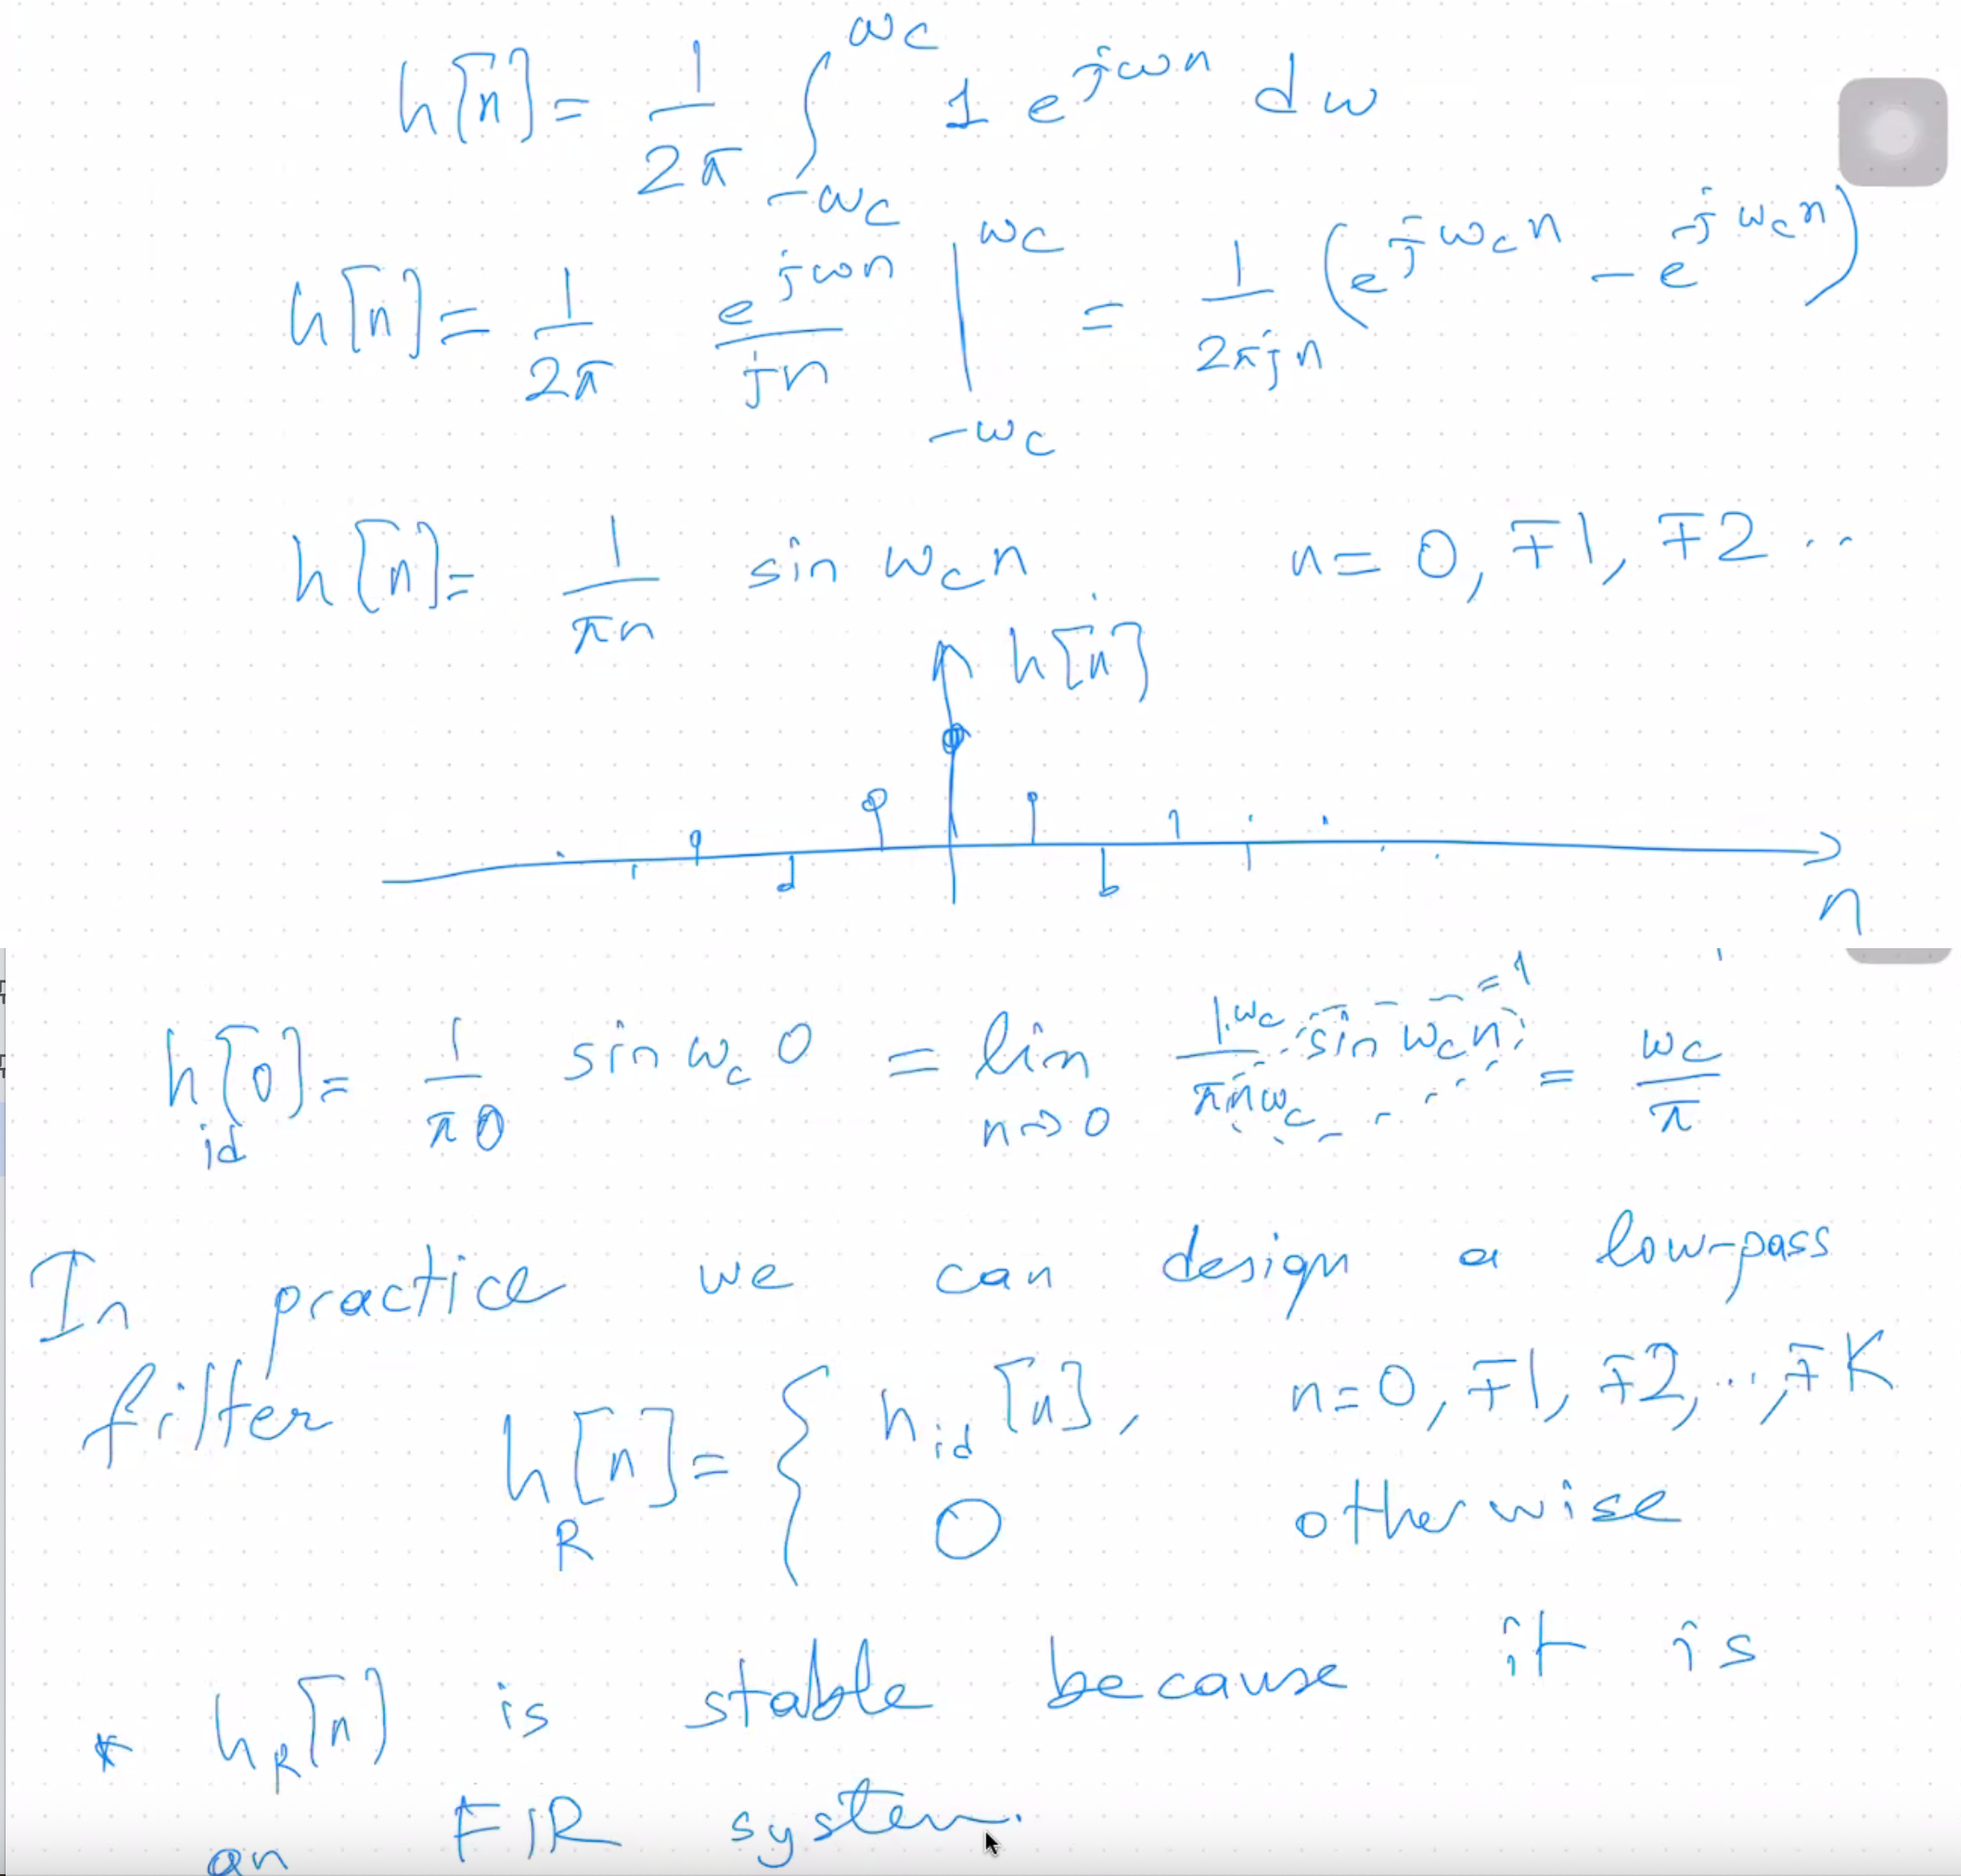 h[n] = 1/2π ∫_{-ωc}^{ωc} 1 e^{jωn} dω
h[n] = 1/2π e^{jωn}/jn |_{-ωc}^{ωc} = 1/2πjn (e^{jωcn} - e^{-jωcn})
h[n] = 1/πn sin ωcn n = 0, ∓1, ∓2 ..
h[n]
n
h_id[0] = 1/π0 sin ωc0 = lim_{n→0} 1·ωc/πnωc sin ωcn = ωc/π
= 1
In practice we can design a low-pass
filter
h_R[n] = { h_id[n], n = 0, ∓1, ∓2, ..., ∓K
0 otherwise
* h_R[n] is stable because it is
an FIR system.